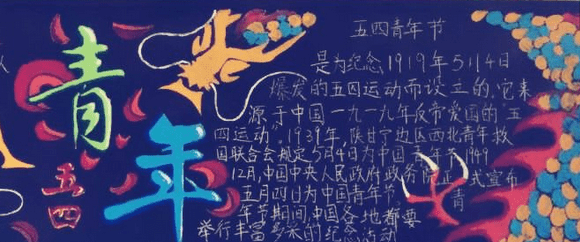 青年
五四
五四青年节
是为纪念1919年5月4日
爆发的五四运动而设立的,它来
源于中国一九一九年反帝爱国的"五
四运动",1939年,陕甘宁边区西北青年救
国联合会规定5月4日为中国青年节。1949
12月,中国中央人民政府政务院正式宣布
五月四日为中国青年节
青
年节期间,中国各地都要
举行丰富多采的纪念活动